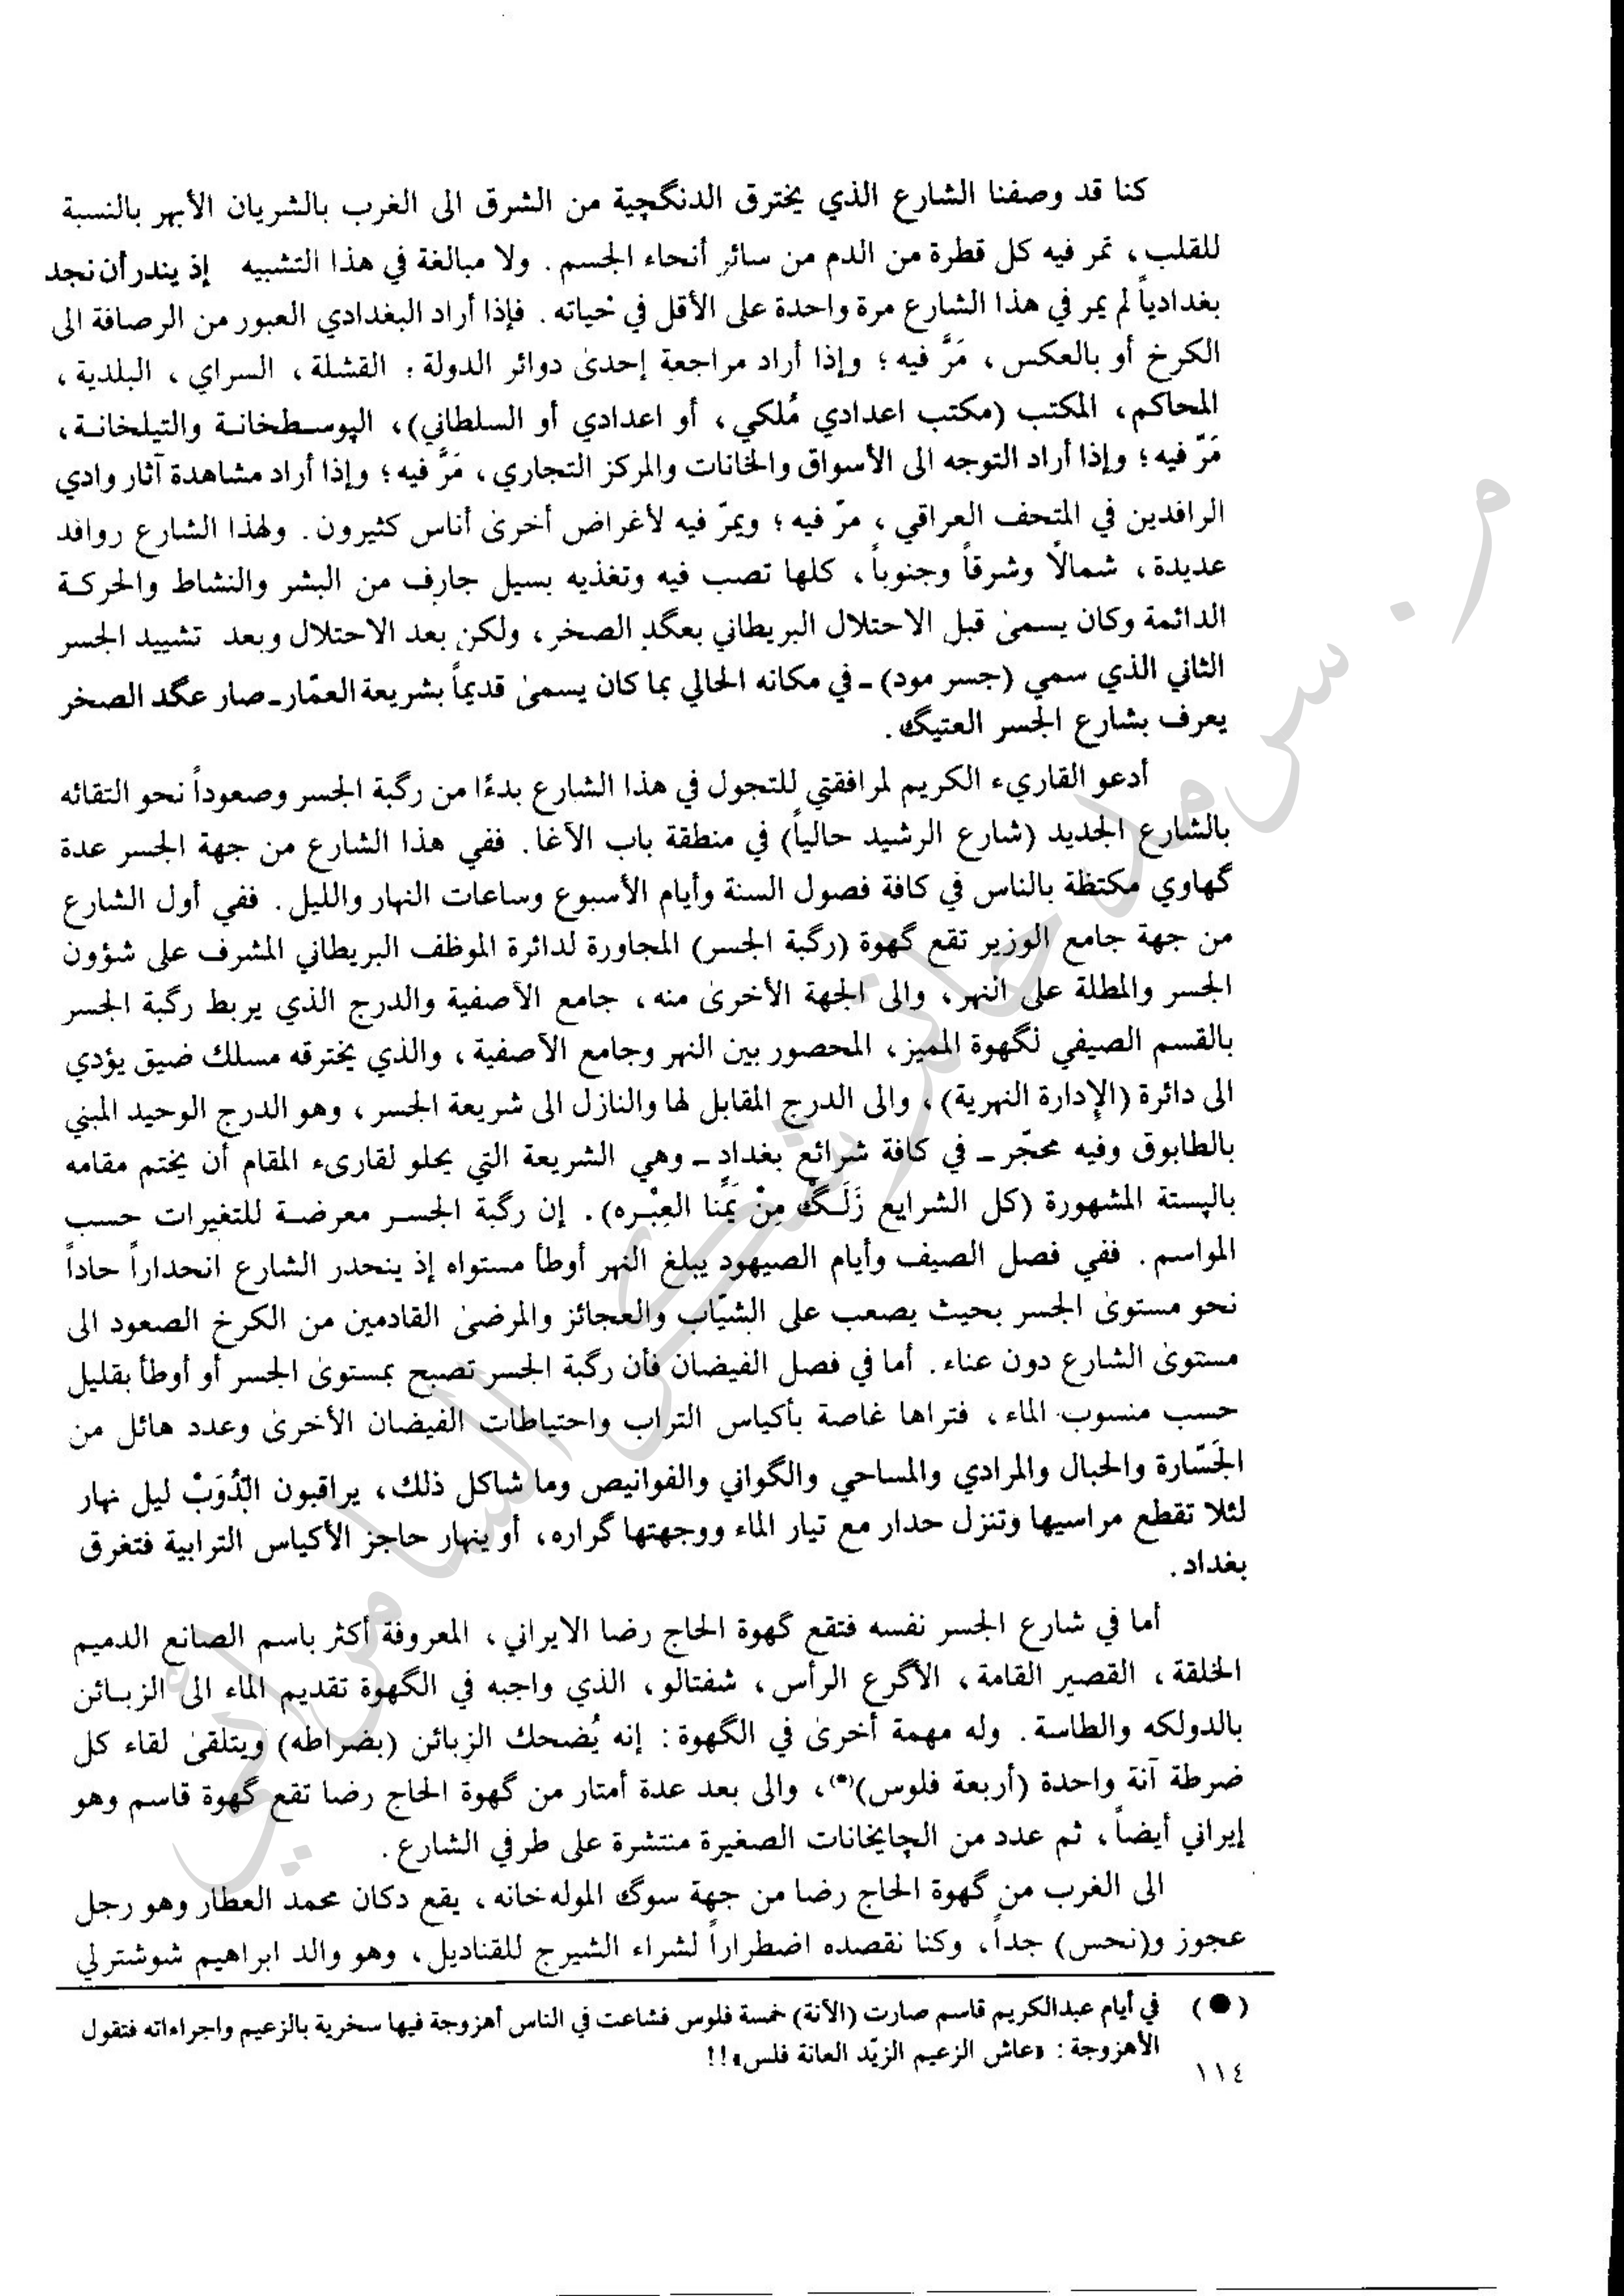 كنا قد وصفنا الشارع الذي يخترق الدنگچية من الشرق الى الغرب بالشريان الأبهر بالنسبة
للقلب، تمر فيه كل قطرة من الدم من سائر أنحاء الجسم. ولا مبالغة في هذا التشبيه إذ يندر أن نجد
بغدادياً لم يمر في هذا الشارع مرة واحدة على الأقل في حياته. فإذا أراد البغدادي العبور من الرصافة الى
الكرخ أو بالعكس، مَرَّ فيه؛ وإذا أراد مراجعة إحدى دوائر الدولة: القشلة، السراي، البلدية،
المحاكم، المكتب (مكتب اعدادي مُلكي، أو اعدادي أو السلطاني)، الپوسطخانة والتيلخانة،
مَرّ فيه؛ وإذا أراد التوجه الى الأسواق والخانات والمركز التجاري، مَرَّ فيه؛ وإذا أراد مشاهدة آثار وادي
الرافدين في المتحف العراقي، مرّ فيه؛ ويمرّ فيه لأغراض أخرى أناس كثيرون. ولهذا الشارع روافد
عديدة، شمالاً وشرقاً وجنوباً، كلها تصب فيه وتغذيه بسيل جارف من البشر والنشاط والحركة
الدائمة وكان يسمى قبل الاحتلال البريطاني بعگد الصخر، ولكن بعد الاحتلال وبعد تشييد الجسر
الثاني الذي سمي (جسر مود) ـ في مكانه الحالي بما كان يسمى قديماً بشريعة العمّار ـ صار عگد الصخر
يعرف بشارع الجسر العتيگ.
أدعو القاريء الكريم لمرافقتي للتجول في هذا الشارع بدءًا من رگبة الجسر وصعوداً نحو التقائه
بالشارع الجديد (شارع الرشيد حالياً) في منطقة باب الآغا. ففي هذا الشارع من جهة الجسر عدة
گهاوي مكتظة بالناس في كافة فصول السنة وأيام الأسبوع وساعات النهار والليل. ففي أول الشارع
من جهة جامع الوزير تقع گهوة (رگبة الجسر) المجاورة لدائرة الموظف البريطاني المشرف على شؤون
الجسر والمطلة على النهر، والى الجهة الأخرى منه، جامع الآصفية والدرج الذي يربط رگبة الجسر
بالقسم الصيفي لگهوة المميز، المحصور بين النهر وجامع الآصفية، والذي يخترقه مسلك ضيق يؤدي
الى دائرة (الإدارة النهرية)، والى الدرج المقابل لها والنازل الى شريعة الجسر، وهو الدرج الوحيد المبني
بالطابوق وفيه محجّر ـ في كافة شرائع بغداد ـ وهي الشريعة التي يحلو لقارىء المقام أن يختم مقامه
بالپستة المشهورة (كل الشرايع زَلَگْ مِنْ يَمْنا العِبْره). إن رگبة الجسر معرضة للتغيرات حسب
المواسم. ففي فصل الصيف وأيام الصيهود يبلغ النهر أوطأ مستواه إذ ينحدر الشارع انحداراً حاداً
نحو مستوى الجسر بحيث يصعب على الشيّاب والعجائز والمرضى القادمين من الكرخ الصعود الى
مستوى الشارع دون عناء. أما في فصل الفيضان فأن رگبة الجسر تصبح بمستوى الجسر أو أوطأ بقليل
حسب منسوب الماء، فتراها غاصة بأكياس التراب واحتياطات الفيضان الأخرى وعدد هائل من
الجَسّارة والحبال والمرادي والمساحي والگواني والفوانيص وما شاكل ذلك، يراقبون الدُوَبْ ليل نهار
لئلا تقطع مراسيها وتنزل حدار مع تيار الماء ووجهتها گراره، أو ينهار حاجز الأكياس الترابية فتغرق
بغداد.
أما في شارع الجسر نفسه فتقع گهوة الحاج رضا الايراني، المعروفة أكثر باسم الصانع الدميم
الخلقة، القصير القامة، الأگرع الرأس، شفتالو، الذي واجبه في الگهوة تقديم الماء الى الزبائن
بالدولكه والطاسة. وله مهمة أخرى في الگهوة: إنه يُضحك الزبائن (بضراطه) ويتلقى لقاء كل
ضرطة آنة واحدة (أربعة فلوس)(●)، والى بعد عدة أمتار من گهوة الحاج رضا تقع گهوة قاسم وهو
إيراني أيضاً، ثم عدد من الچايخانات الصغيرة منتشرة على طرفي الشارع.
الى الغرب من گهوة الحاج رضا من جهة سوگ المولەخانه، يقع دكان محمد العطار وهو رجل
عجوز و(نحس) جداً، وكنا نقصده اضطراراً لشراء الشيرج للقناديل، وهو والد ابراهيم شوشترلي
(●) في أيام عبدالكريم قاسم صارت (الآنة) خمسة فلوس فشاعت في الناس أهزوجة فيها سخرية بالزعيم واجراءاته فتقول
الأهزوجة: «عاش الزعيم الزيّد العانة فلس»!!
١١٤